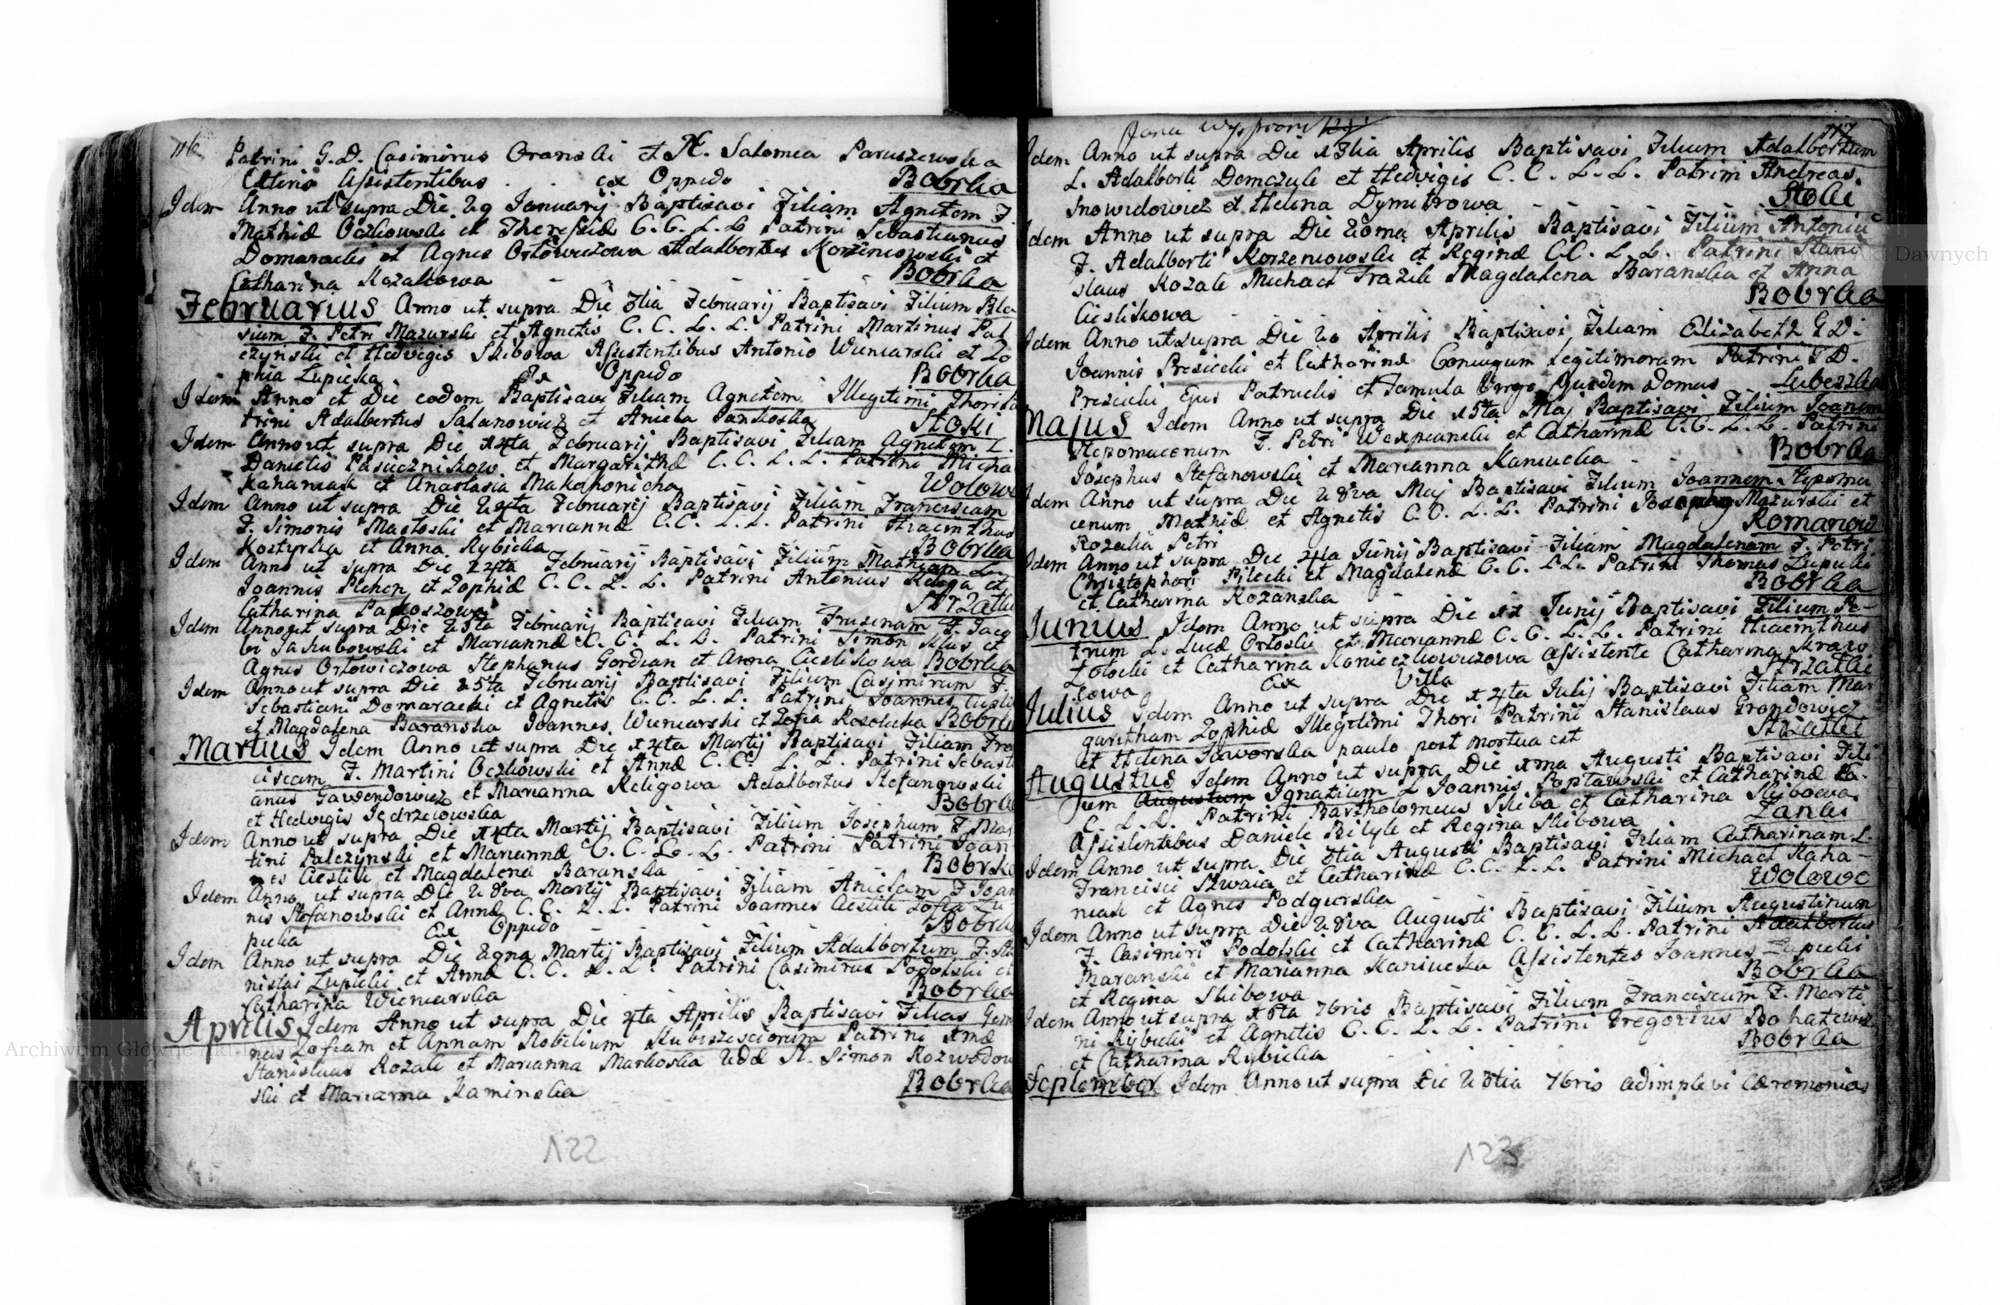 116
Patrini G.D. Casimirus Oranski et M. Salomea Paruszewska
Cæteris Assistentibus ex Oppido Bobrka
Idem Anno ut supra Die 29 Januarij Baptisavi Filiam Agnetem F.
Mathiæ Oczkowski et Theresiæ C.C. L.L. Patrini Sebastianus
Domaracki et Agnes Orłowiczowa Adalbertus Korzeniowski et
Catharina Kozakowa Bobrka
Februarius Anno ut supra Die 3tia Februarij Baptisavi Filium Bla
sium F. Petri Mazurski et Agnetis C.C. L.L. Patrini Martinus Pal
czyński et Hedvigis Skibowa Assistentibus Antonio Winiarski et Zo
phia Łupicka Ex Oppido Bobrka
Idem Anno et Die eodem Baptisavi Filiam Agnetem Illegitimi Thori Pa
trini Adalbertus Salanowicz et Aniela Stoki
Idem Anno ut supra Die Februarij Baptisavi Filiam Agnetem L.
Danielis et Margarithæ C.C. L.L. Patrini Micha
Kahaniak et Anastasia Makohonicha Wolowe
Idem Anno ut supra Die Februarij Baptisavi Filiam Franciscam
F. Simonis Matłoski et Mariannæ C.C. L.L. Patrini Hiacinthus
Kostyrka et Anna Rybicka Bobrka
Idem Anno ut supra Die Februarij Baptisavi Filium Mathiam L.
Joannis et Zophiæ C.C. L.L. Patrini Antonius et
Catharina Strzałki
Idem Anno ut supra Die Februarij Baptisavi Filiam F. Jaco
bi Jakubowski et Mariannæ C.C. L.L. Patrini Simon Kłus et
Agnes Orłowiczowa Stephanus Gordian et Anna Cieslikowa Bobrka
Idem Anno ut supra Die 25ta Februarij Baptisavi Filium Casimirum F.
Sebastiani Domaracki et Agnetis C.C. L.L. Patrini Joannes
et Magdalena Baranska Joannes Winiarski et Zofia Bobrka
Martius Idem Anno ut supra Die Martij Baptisavi Filiam Fran
ciscam F. Martini Oczkowski et Annæ C.C. L.L. Patrini Sebasti
anus Gawendowicz et Marianna Religowa Adalbertus Stefanowski
et Hedvigis Jędrzeiowska Bobrka
Idem Anno ut supra Die Martij Baptisavi Filium Josephum F. Mar
tini Palczynski et Mariannæ C.C. L.L. Patrini Patrini Joan
nes Ciestik et Magdalena Baranska Bobrka
Idem Anno ut supra Die 28va Martij Baptisavi Filiam Anielam F. Joan
nis Stefanowski et Annæ C.C. L.L. Patrini Joannes Zofia Łu
picka Ex Oppido Bobrka
Idem Anno ut supra Die Martij Baptisavi Filium Adalbertum F. Sta
nislai Łupicki et Annæ C.C. L.L. Patrini Casimirus Podolski et
Catharina Wieniarska Bobrka
Aprilis Idem Anno ut supra Die Aprilis Baptisavi Filias Gemi
nas Zofiam et Annam Nobilium Patrini
Stanislaus Kozak et Marianna Markoska M. Simon Rozwodow
ski et Marianna Kaminska Bobrka
122
117
Jana
Idem Anno ut supra Die 13tia Aprilis Baptisavi Filium Adalbertum
L. Adalberti Domczuk et Hedvigis C.C. L.L. Patrini Andreas
Snowidowicz et Helena Dymitrowa Stoki
Idem Anno ut supra Die Aprilis Baptisavi Filium Antoniu
F. Adalberti Korzeniowski et Reginæ C.C. L.L. Patrini Stani
slaus Kozak Michael Magdalena Baranska et Anna
Cieslikowa Bobrka
Idem Anno ut supra Die 20 Aprilis Baptisavi Filiam Elizabeth G.D.
Joannis Presicki et Catharinæ Coniugum legitimorum Patrini G.D.
Presicki Ejus Patruelis et Famula Virgo Ejusdem Domus Lubeszka
Majus Idem Anno ut supra Die Maj Baptisavi Filium Joanem
Nepomucenum F. Petri et Catharinæ C.C. L.L. Patrini
Josephus Stefanowski et Marianna Kaniucka Bobrka
Idem Anno ut supra Die 28va Maj Baptisavi Filium Joannem Nepomu
cenum Mathiæ et Agnetis C.C. L.L. Patrini Josephus Mazurski et
Rozalia Petri Romanow
Idem Anno ut supra Die Junij Baptisavi Filiam Magdalenam F. Petri
Christophori Pilecki et Magdalenæ C.C. L.L. Patrini Thomas Łupicki
et Catharina Kozanska Bobrka
Junius Idem Anno ut supra Die Junij Baptisavi Filium Pe
trum L. Lucæ Orłoski et Mariannæ C.C. L.L. Patrini Hiacinthus
Zołocki et Catharina Konieczkowiczowa Assistente Catharina Kraw
cowa Ex Villa Strzałki
Julius Idem Anno ut supra Die Julij Baptisavi Filiam Mar
garitham Zophiæ Illegitimi Thori Patrini Stanislaus Grondowicz
et Helena Jaworska paulo post mortua est Strzałki
Augustus Idem Anno ut supra Die Augusti Baptisavi Fili
um Augustum Ignatium L Joannis Poptawski et Catharinæ
C. L.L. Patrini Bartholomeus Skiba et Catharina Skibowa
Assistentibus Daniele Bilyk et Regina Skibowa Łanki
Idem Anno ut supra Die 3tia Augusti Baptisavi Filiam Catharinam L.
Francisci et Catharinæ C.C. L.L. Patrini Michael Kaha
niak et Agnes Podgurska Wolowe
Idem Anno ut supra Die 28va Augusti Baptisavi Filium Augustinum
F. Casimiri Podolski et Catharinæ C.C. L.L. Patrini Adalbertus
Maranski et Marianna Kaniucka Assistentes Joannes Łupicki
et Regina Skibowa Bobrka
Idem Anno ut supra 7bris Baptisavi Filium Franciscum F. Marti
ni Rybicki et Agnetis C.C. L.L. Patrini Gregorius
et Catharina Rybicka Bobrka
September Idem Anno ut supra Die 23tia 7bris adimplevi Cæremonias
123
Archiwum Główne Akt Dawnych